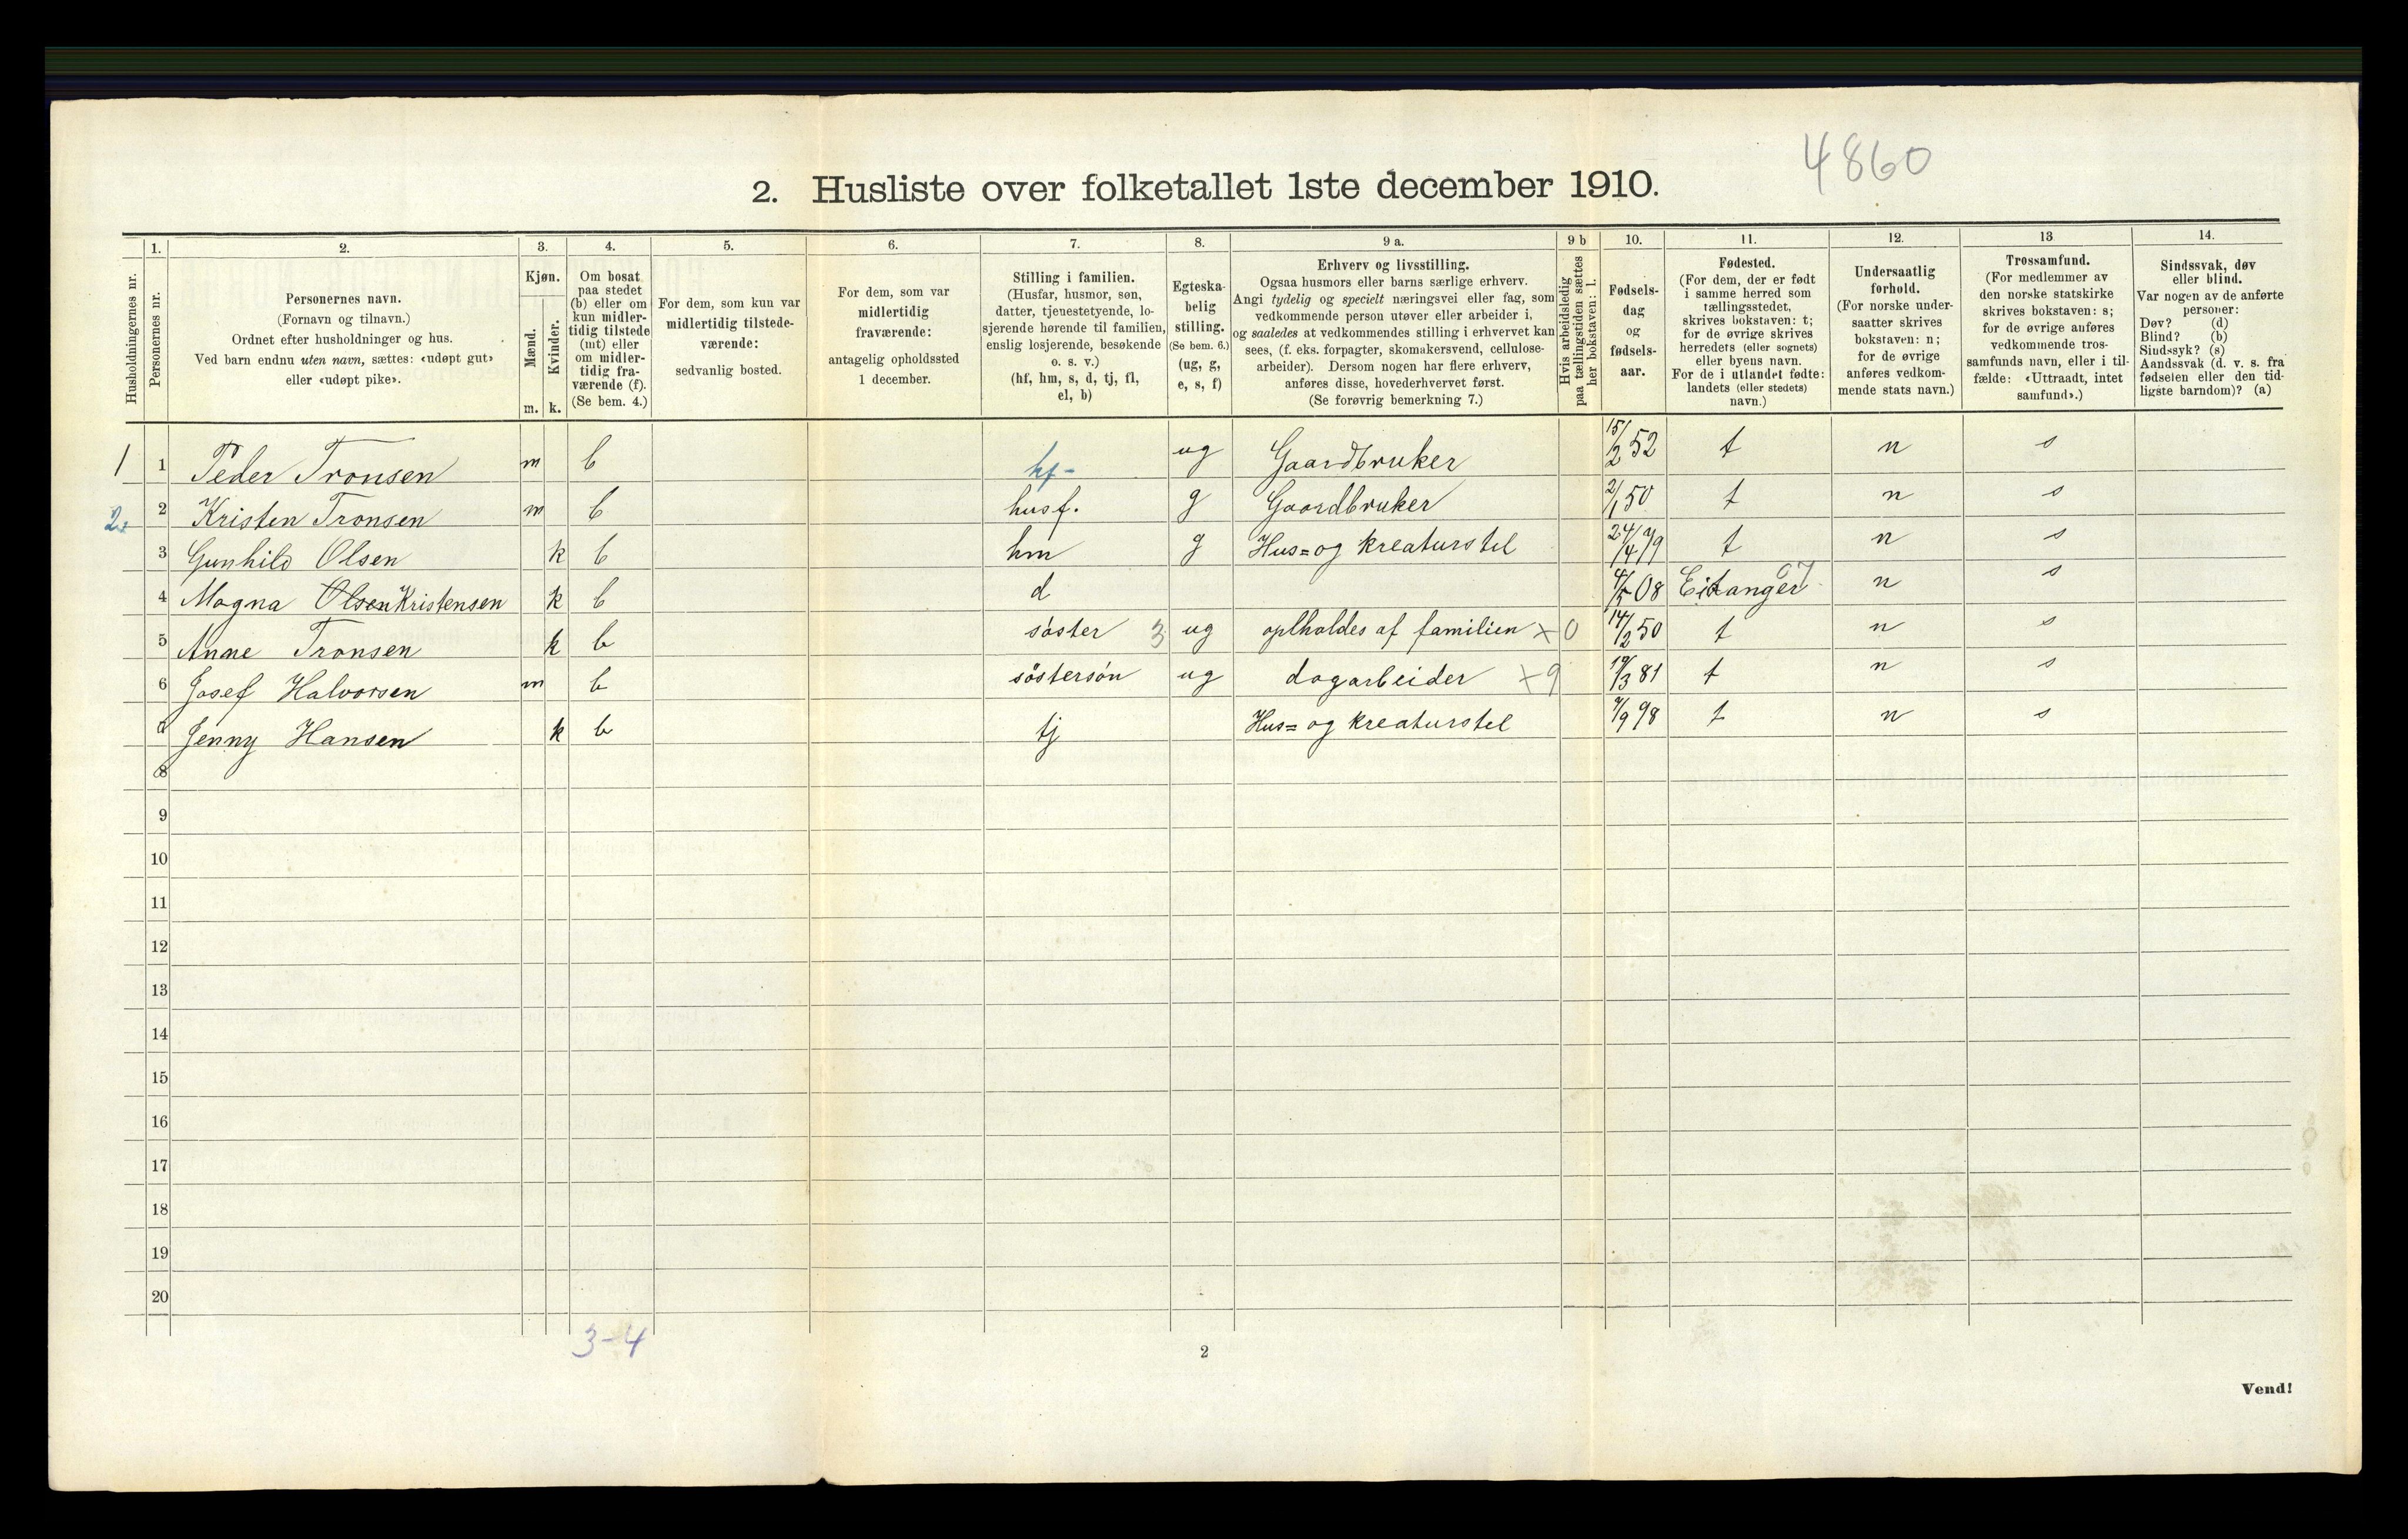 4860
2. Husliste over folketallet 1ste december 1910.
1. 2. 3. 4. 5. 6. 7. 8. 9 a. 9 b 10. 11. 12. 13 14.
Husholdningernes nr.
Personernes nr.
Personernes navn.
(Fornavn og tilnavn.)
Ordnet efter husholdninger og hus.
Ved barn endnu uten navn, sættes: «udøpt gut»
eller «udøpt pike».
Kjøn.
Mænd.
Kvinder.
m. k.
Om bosat
paa stedet
(b) eller om
kun midler-
tidig tilstede
(mt) eller
om midler-
tidig fra-
værende (f).
(Se bem. 4.)
For dem, som kun var
midlertidig tilstede-
værende:
sedvanlig bosted.
For dem, som var
midlertidig
fraværende:
antagelig opholdssted
1 december.
Stilling i familien.
(Husfar, husmor, søn,
datter, tjenestetyende, lo-
sjerende hørende til familien,
enslig losjerende, besøkende
o. s. v.)
(hf, hm, s, d, tj, fl,
el, b)
Egteska-
belig
stilling.
(Se bem. 6.)
(ug, g,
e, s, f)
Erhverv og livsstilling.
Ogsaa husmors eller barns særlige erhverv.
Angi tydelig og specielt næringsvei eller fag, som
vedkommende person utøver eller arbeider i,
og saaledes at vedkommendes stilling i erhvervet kan
sees, (f. eks. forpagter, skomakersvend, cellulose-
arbeider). Dersom nogen har flere erhverv,
anføres disse, hovederhvervet først.
(Se forøvrig bemerkning 7.)
Hvis arbeidsledig
paa tællingstiden sættes
her bokstaven: l.
Fødsels-
dag
og
fødsels-
aar.
Fødested.
(For dem, der er født
i samme herred som
tællingsstedet,
skrives bokstaven: t;
for de øvrige skrives
herredets (eller sognets)
eller byens navn.
For de i utlandet fødte:
landets (eller stedets)
navn.)
Undersaatlig
forhold.
(For norske under-
saatter skrives
bokstaven: n;
for de øvrige
anføres vedkom-
mende stats navn.)
Trossamfund.
(For medlemmer av
den norske statskirke
skrives bokstaven: s;
for de øvrige anføres
vedkommende tros-
samfunds navn, eller i til-
fælde: «Uttraadt, intet
samfund».)
Sindssvak, døv
eller blind.
Var nogen av de anførte
personer:
Døv? (d)
Blind? (b)
Sindssyk? (s)
Aandssvak (d. v. s. fra
fødselen eller den tid-
ligste barndom)? (a)
1 1 Peder Tronsen m b hf- ug Gaardbruker 15/2 52 t n s
2. 2 Kristen Tronsen m b husf. g Gaardbruker 2/1 50 t n s
3 Gunhild Olsen k b hm g Hus= og kreaturstel 24/4 79 t n s
4 Magna Olsen Kristensen k b d 4/5 08 Eitanger 07 n s
5 Anne Tronsen k b søster 3 ug oplholdes af familien × 0 14/2 50 t n s
6 Josef Halvorsen m b søstersøn ug dagarbeider × 9 19/3 81 t n s
7 Jenny Hansen k b tj Hus= og kreaturstel 7/9 98 t n s
8
9
10
11
12
13
14
15
16
17
18
19
20
3-4
2
Vend!